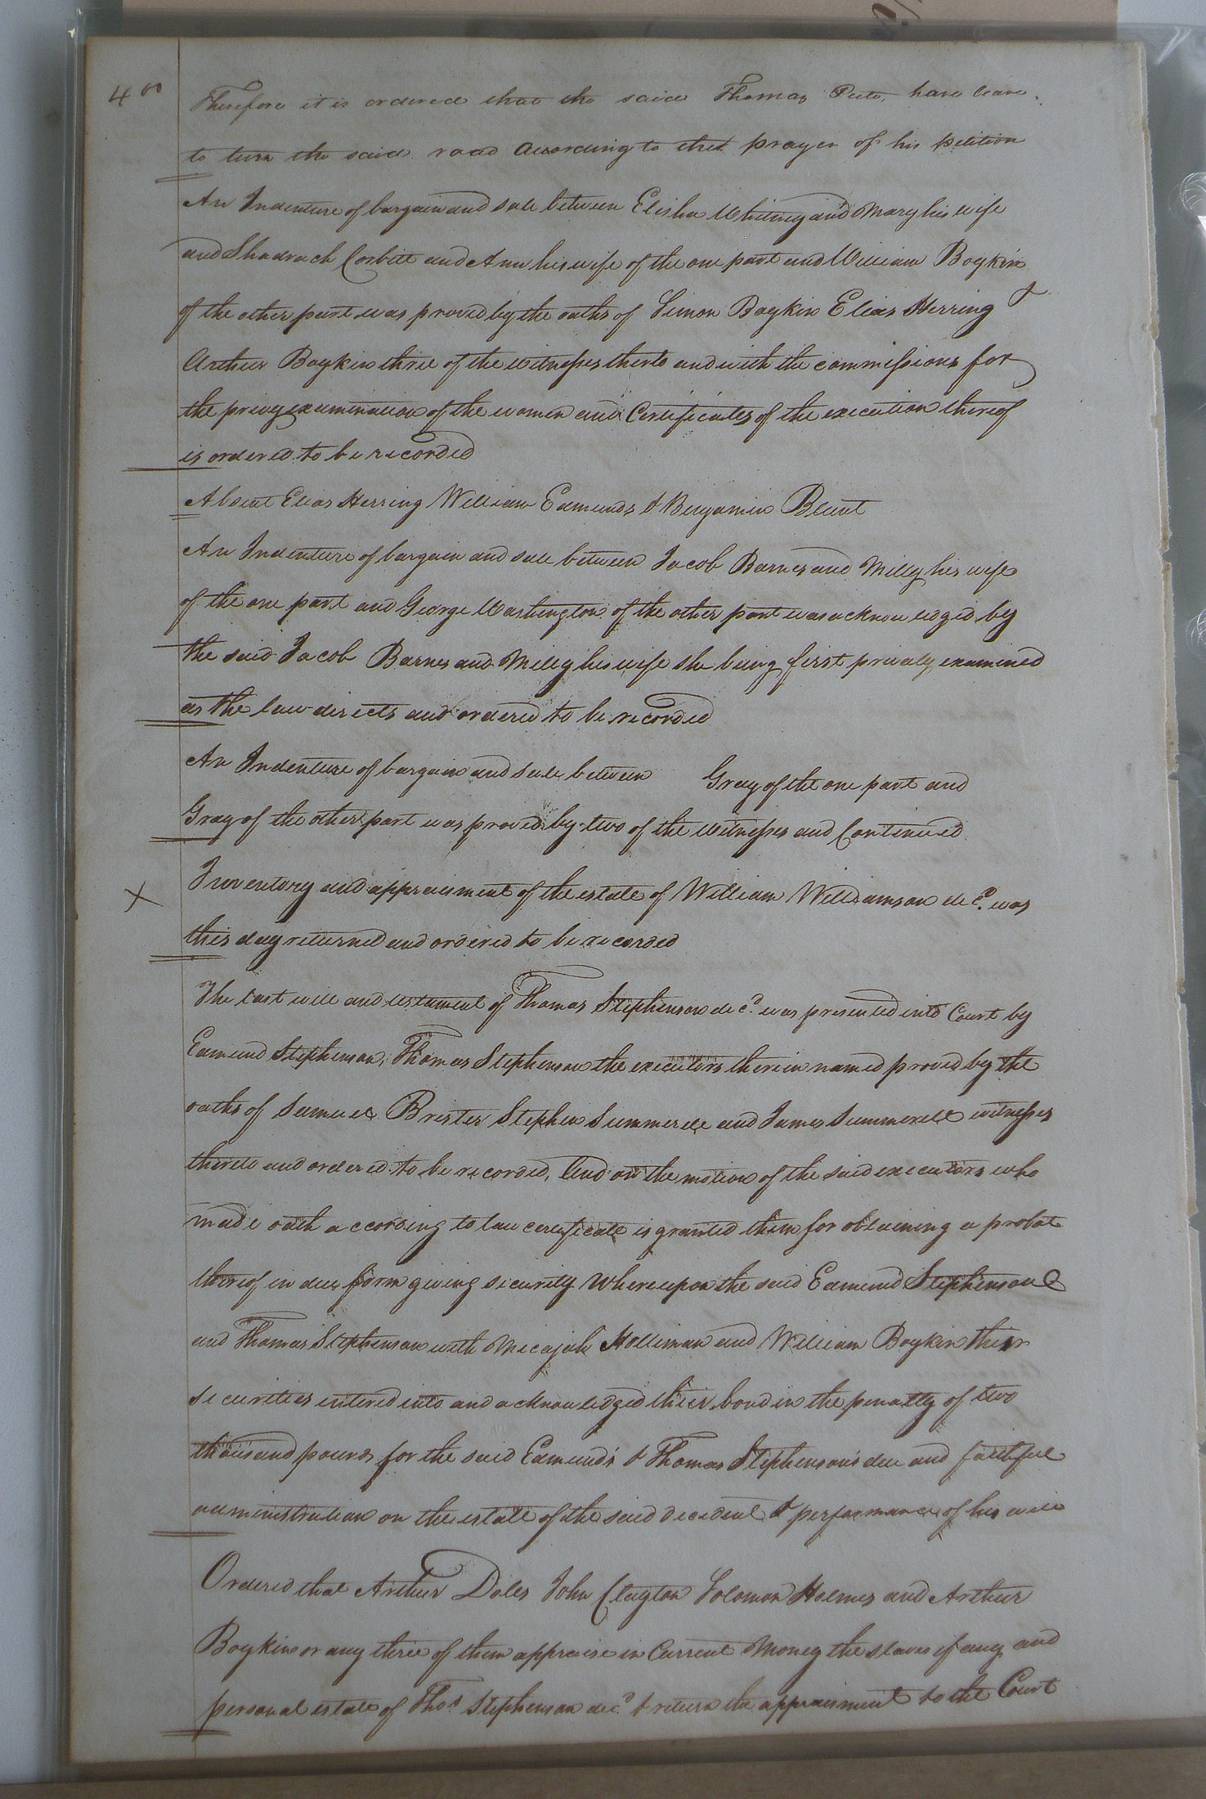 Therefore it is ordered that the said Thomas Pete, have leave
to turn the said road according to the prayer of his petition
An Indenture of bargain and sale between Elisha Whitney and Mary his wife
and Shadrach Corbitt and Ann his wife of the one part and William Boykin
of the other part was proved by the oaths of Simon Boykin Elias Herring &
Arthur Boykin three of the witnesses thereto and with the commissions for
the privy examination of the women and Certificates of the execution thereof
is ordered to be recorded
Absent Elias Herring William Edmunds & Benjamin Blunt
An Indenture of bargain and sale between Jacob Barnes and Milly his wife
of the one part and George Washington of the other part was acknowledged by
the said Jacob Barnes and Milly his wife she being first privily examined
as the law directs and ordered to be recorded
An Indenture of bargain and sale between Gray of the one part and
Gray of the other part was proved by two of the witnesses and Continued
X Inventory and appraisment of the estate of William Williamson decd. was
this day returned and ordered to be recorded
The last will and testament of Thomas Stephenson decd. was presented into Court by
Edmund Stephenson, Thomas Stephenson the executors therein named proved by the
oaths of Samuel Brister Stephen Summerell and James Summerell witnesses
thereto and ordered to be recorded, And on the motion of the said executors who
made oath according to law certificate is granted them for obtaining a probat
thereof in due form giving security Whereupon the said Edmund Stephenson
and Thomas Stephenson with Micajah Holliman and William Boykin their
securities entered into and acknowledged their bond in the penalty of two
thousand pounds for the said Edmund's & Thomas Stephenson's due and faithful
administration on the estate of the said decedent & performance of his will
Ordered that Arthur Doles John Clayton Solomon Holmes and Arthur
Boykin or any three of them appraise in Current Money the slaves if any and
personal estate of Thos. Stephenson decd. & return the appraisment to the Court